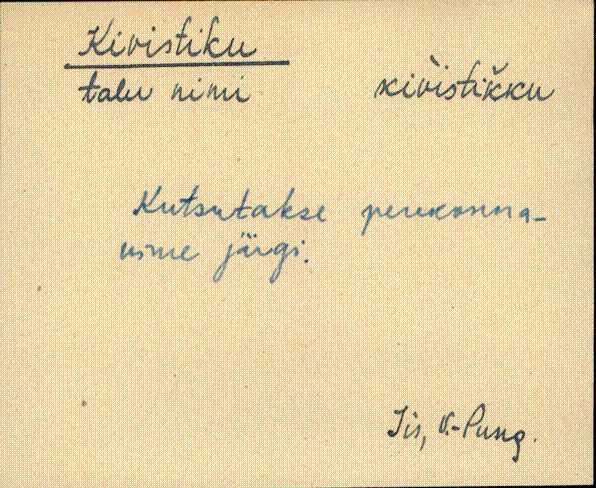 Kivistiku
talu nimi kivistikku
Kutsutakse perekonna-
nime järgi.
Iis, V.-Pung.